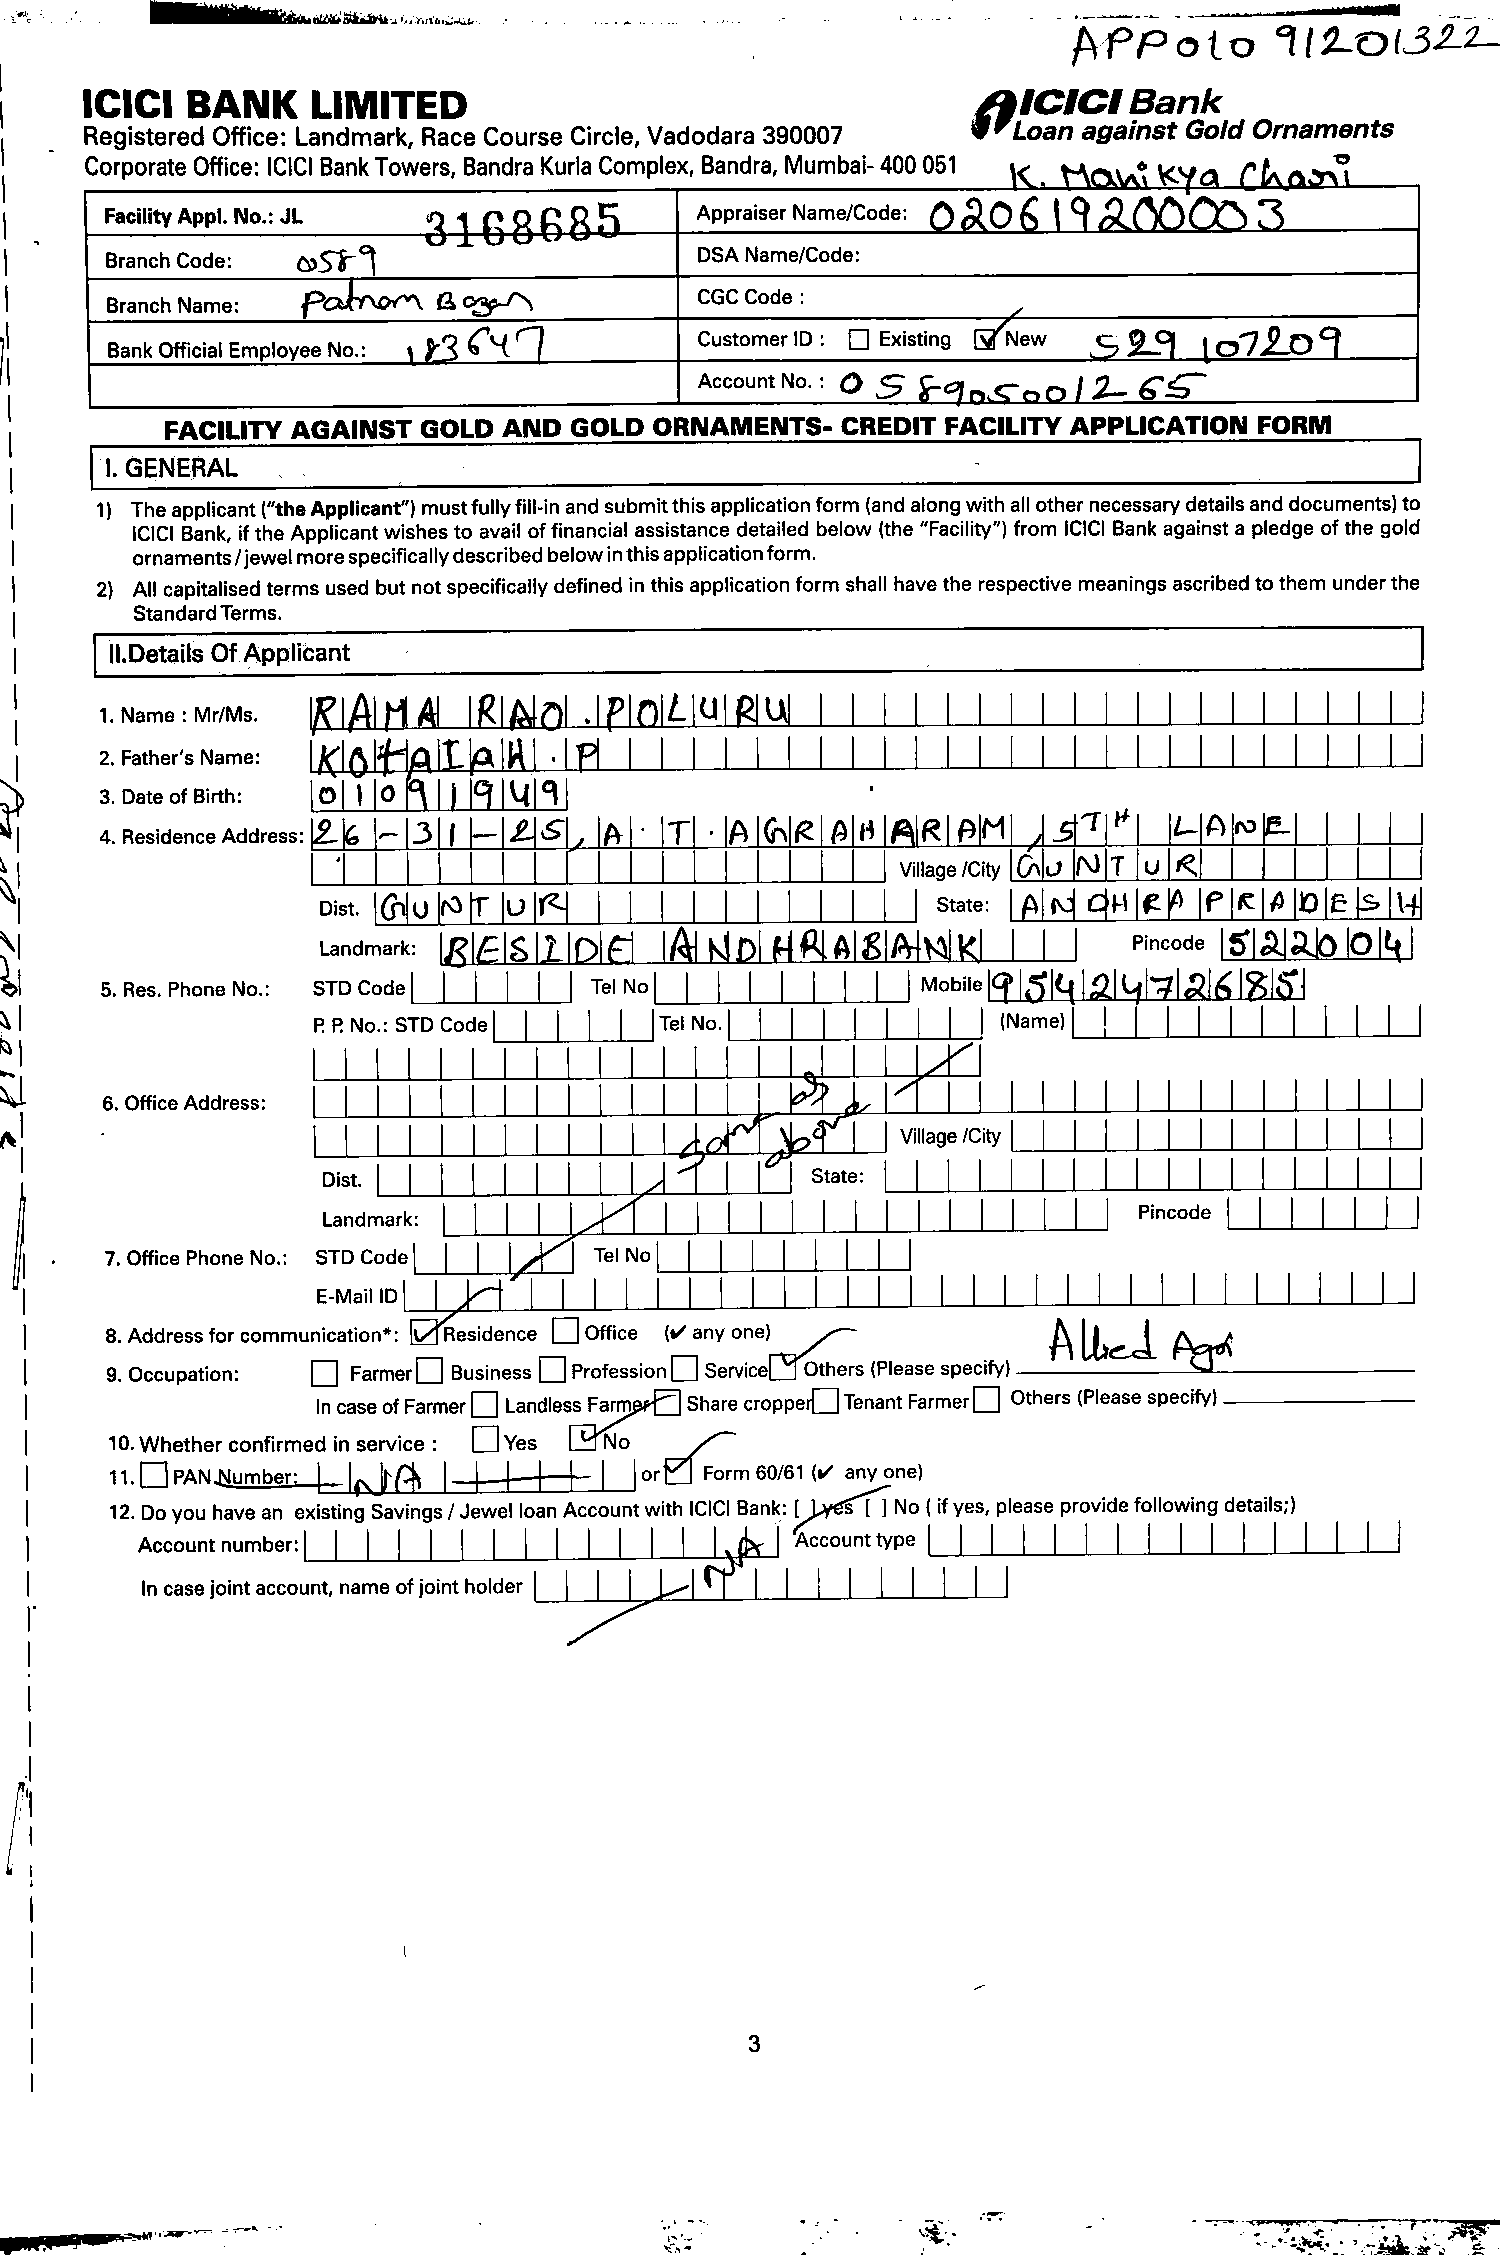 APPOLO 91201322
ICICI BANK LIMITED
Registered Office: Landmark, Race Course Circle, Vadodara 390007
Corporate Office: ICICI Bank Towers, Bandra Kurla Complex, Bandra, Mumbai- 400 051
ICICI Bank
Loan against Gold Ornaments
K. Manikya Chari
Facility Appl. No.: JL 3168685
Appraiser Name/Code: 020619200003
Branch Code: 0589
DSA Name/Code:
Branch Name: Patnam Bazar
CGC Code :
Bank Official Employee No.: 183647
Customer ID : Existing New 529107209
Account No. : 058905001265
FACILITY AGAINST GOLD AND GOLD ORNAMENTS- CREDIT FACILITY APPLICATION FORM
I. GENERAL
1) The applicant ("the Applicant") must fully fill-in and submit this application form (and along with all other necessary details and documents) to
ICICI Bank, if the Applicant wishes to avail of financial assistance detailed below (the "Facility") from ICICI Bank against a pledge of the gold
ornaments / jewel more specifically described below in this application form.
2) All capitalised terms used but not specifically defined in this application form shall have the respective meanings ascribed to them under the
Standard Terms.
II.Details Of Applicant
1. Name : Mr/Ms. RAMA RAO . POLURU
2. Father's Name: KOtAIAH . P
3. Date of Birth: 01091949
4. Residence Address: 26-31-25, A. T. AGRAHARAM, 5TH LANE
Village /City GUNTUR
Dist. GUNTUR State: ANDHRA PRADESH
Landmark: BESIDE ANDHRABANK Pincode 522004
5. Res. Phone No.: STD Code Tel No Mobile 9542472685
P. P. No.: STD Code Tel No. (Name)
6. Office Address:
Same as
above
Village /City
Dist. State:
Landmark: Pincode
7. Office Phone No.: STD Code Tel No
E-Mail ID
8. Address for communication*: Residence Office (✔ any one)
9. Occupation: Farmer Business Profession Service Others (Please specify) Allied Agri
In case of Farmer Landless Farmer Share cropper Tenant Farmer Others (Please specify)
10. Whether confirmed in service : Yes No
11. PAN Number: NA or Form 60/61 (✔ any one)
12. Do you have an existing Savings / Jewel loan Account with ICICI Bank: [ ] yes [ ] No ( if yes, please provide following details;)
Account number: Account type
NA
In case joint account, name of joint holder
3